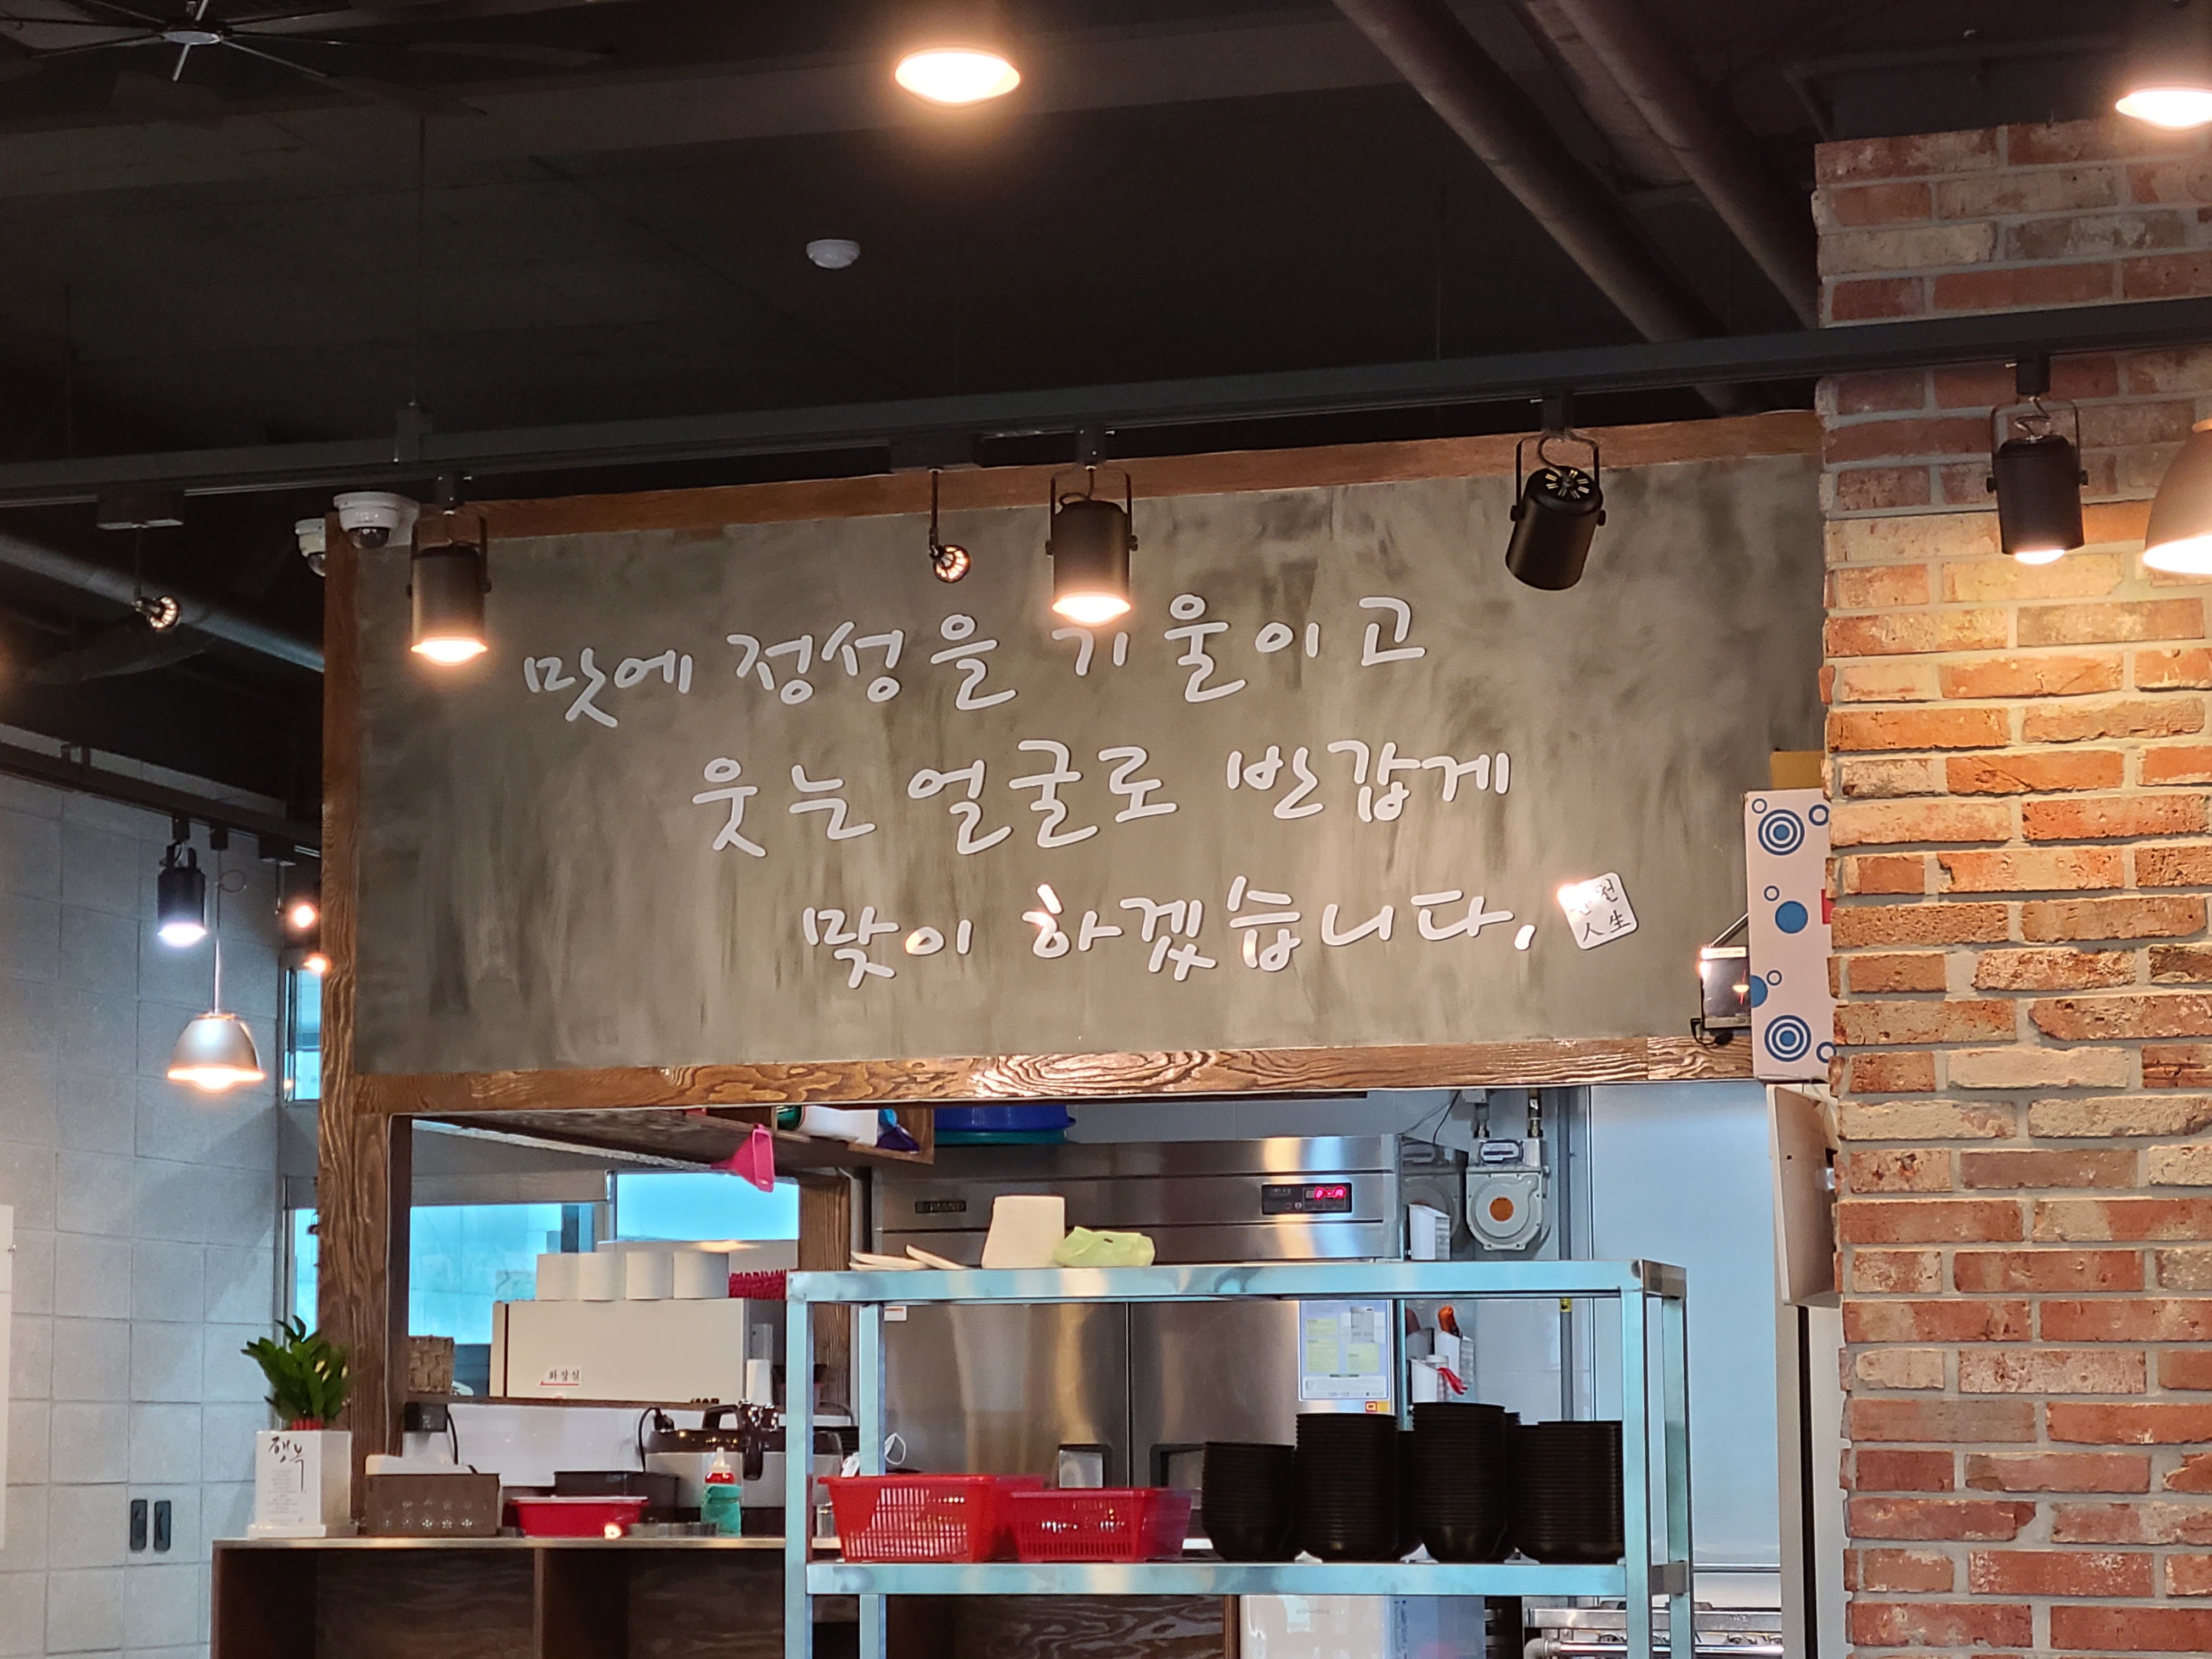 맛에 정성을 기울이고
웃는 얼굴로 반갑게
맞이 하겠습니다.
人生
화장실
행복